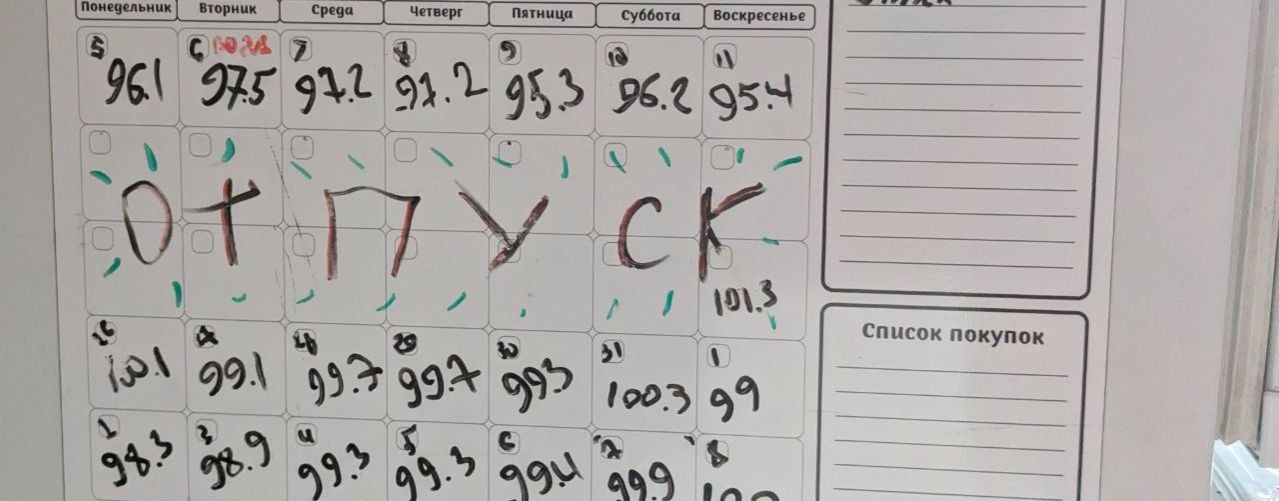 Понедельник Вторник Среда Четверг Пятница Суббота Воскресенье
5 6 7 8 9 10 11
96.1 97.5 97.2 97.2 95.3 96.2 95.4
ОТПУСК
101.3
Список покупок
28 29 30 31 1
99.1 99.7 99.7 99.3 100.3 99
3 4 5 6 7 8
98.3 98.9 99.3 99.3 99.4 99.9